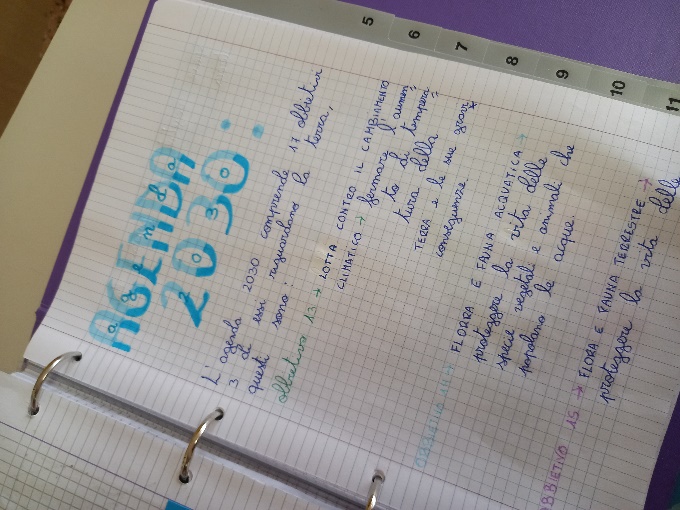 AGENDA
2030:
L'agenda 2030 comprende 17 obbiettivi
3 di essi riguardano la terra,
questi sono:
obbiettivo 13 → LOTTA CONTRO IL CAMBIAMENTO
CLIMATICO → fermare l'aumen=
to di tempera=
tura della
TERRA e le sue gravi
conseguenze.
OBBIETTIVO 14 → FLORRA E FAUNA ACQUATICA →
proteggere la vita delle
specie vegetali e animali che
popolano le acque.
OBBIETIVO 15 → FLORA E FAUNA TERRESTRE →
proteggere la vita delle
5
6
7
8
9
10
11